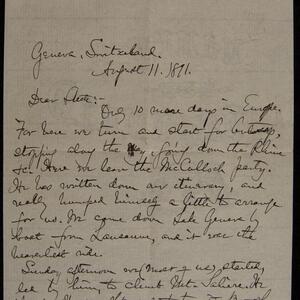 Geneva, Switzerland.
August 11. 1891.
Dear Steve:-
Only 10 more days in Europe.
For here we turn and start for
stopping along the way, going down the Rhine
&c. Here we leave the McCulloch party.
He has written down our itinerary, and
really humped himself a little to arrange
for us. We came down Lake Geneva by
boat from Lausanne, and it was the
heavenliest ride.
Sunday afternoon we (most of us) started
to climb Mt. Saleve. We